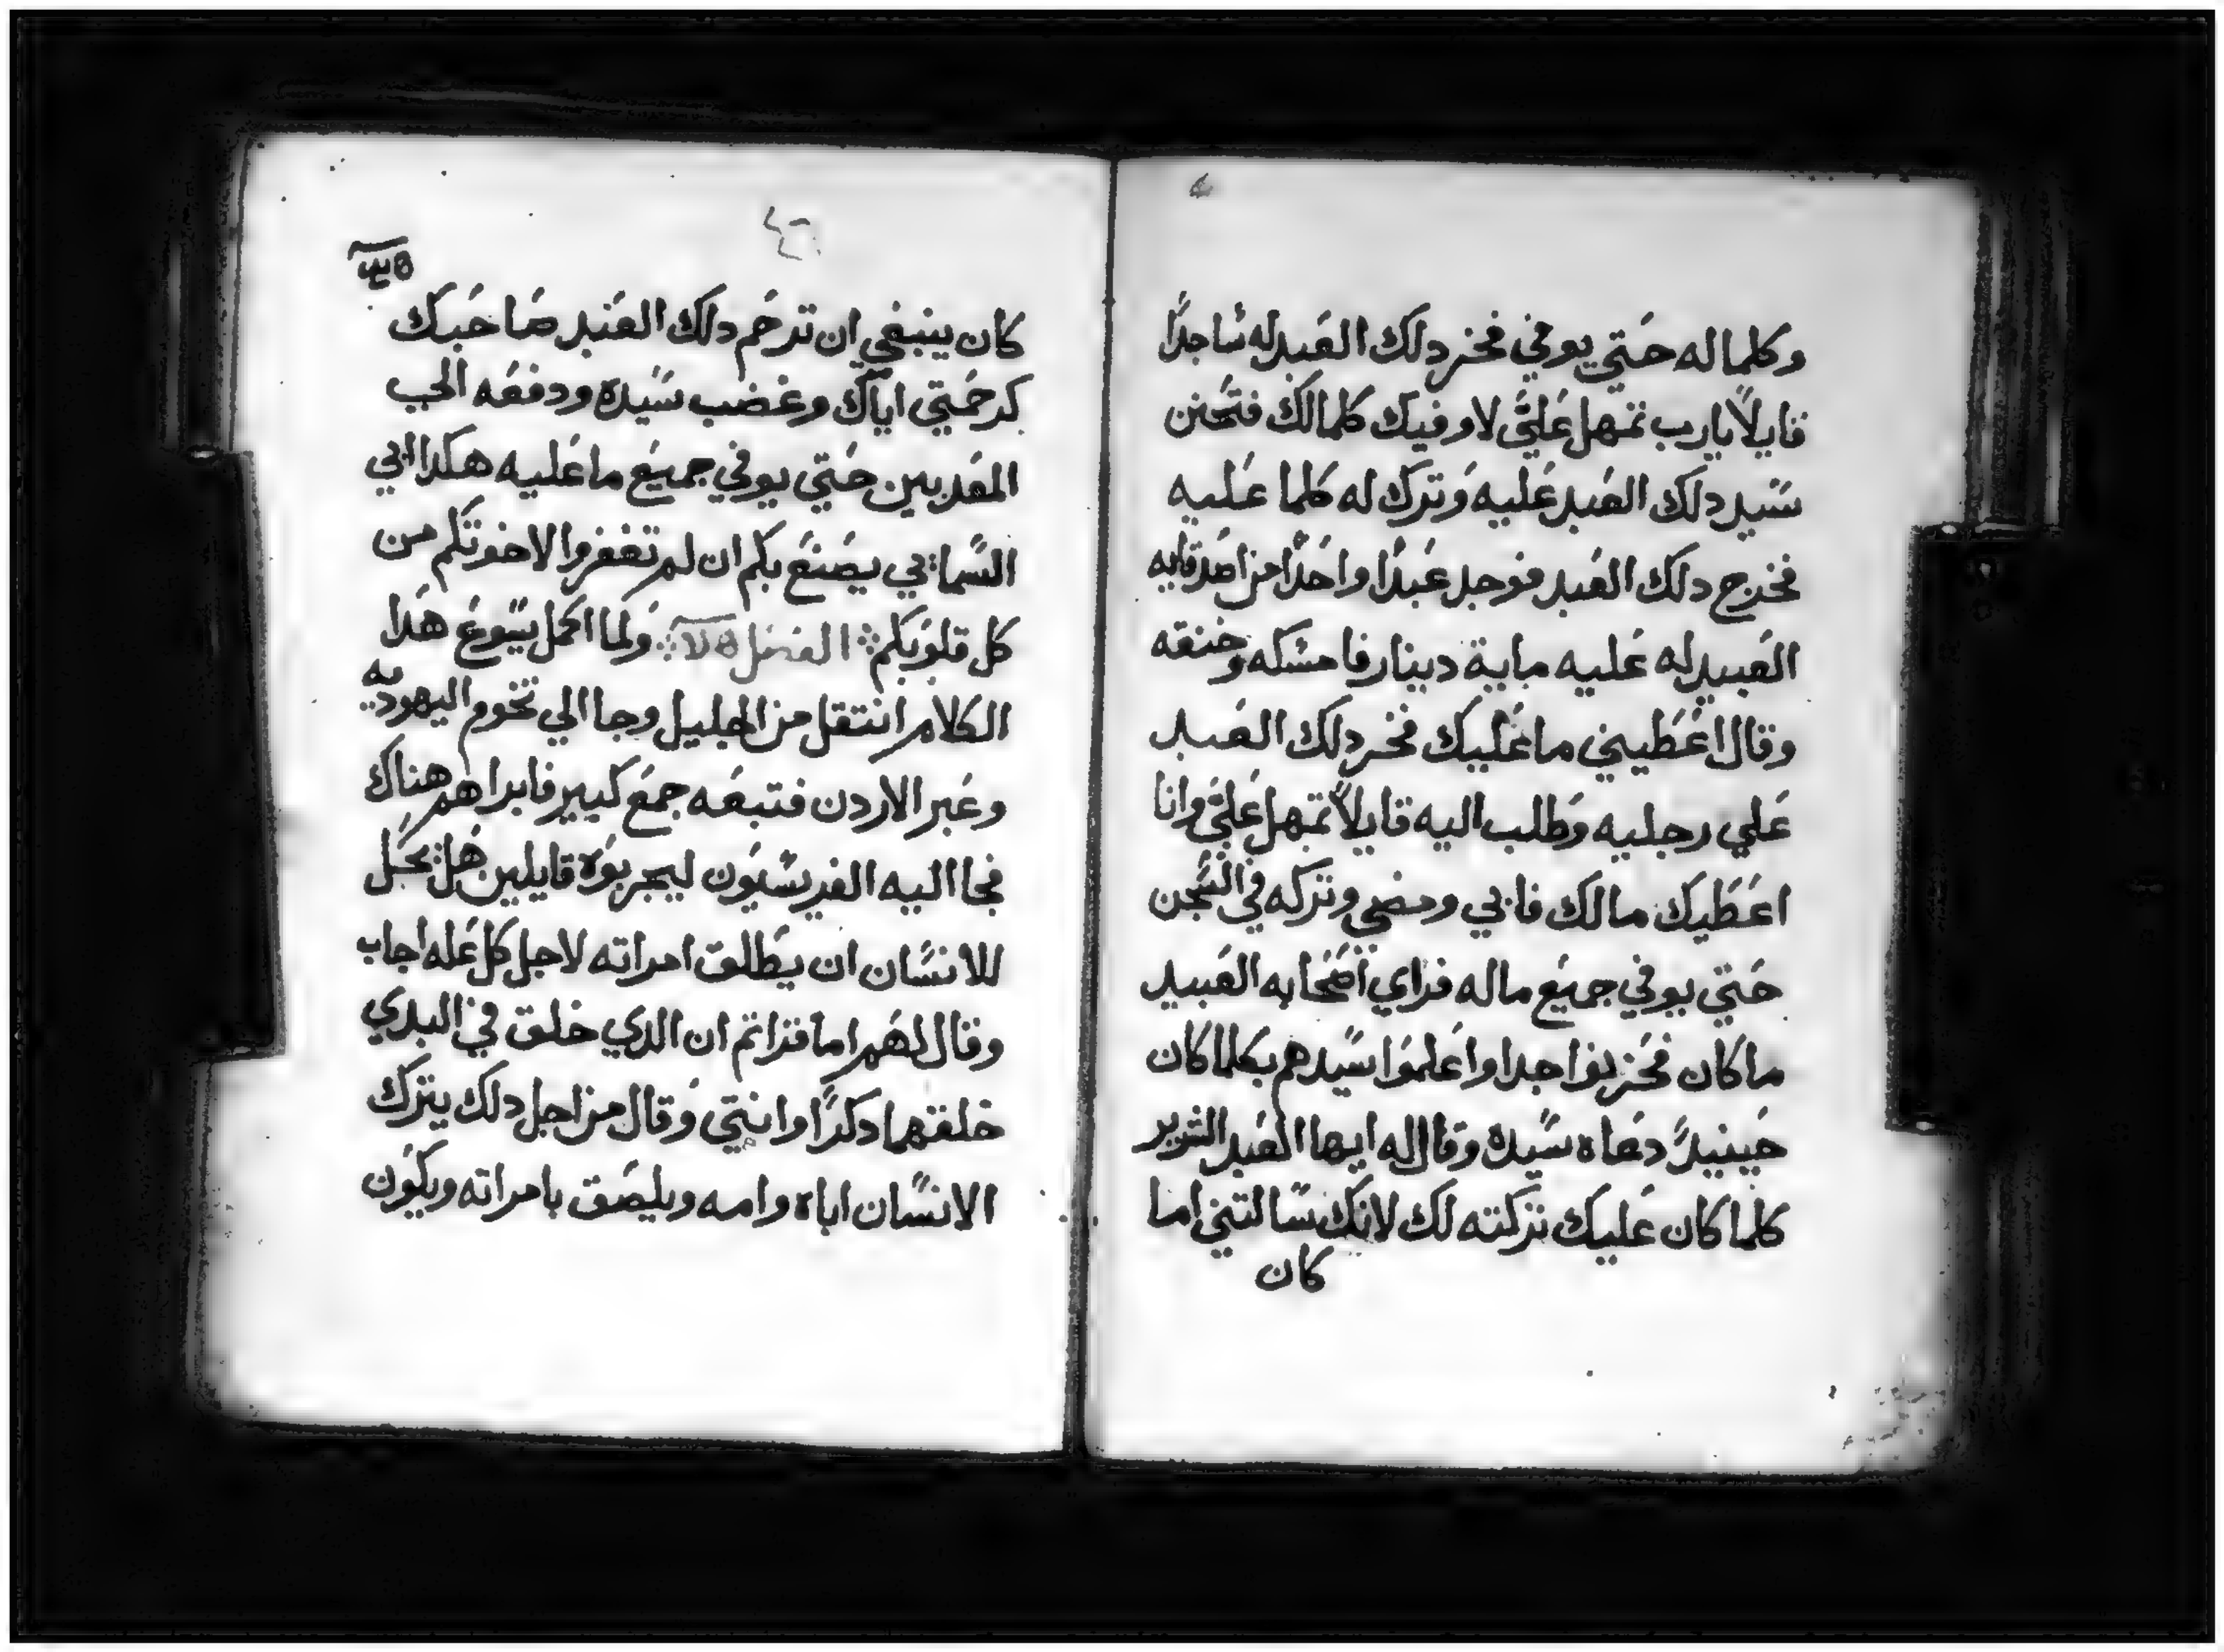 وكلما له حتي يوفي فخر دلك العبد له ساجدًا
قايلاً يارب تمهل عليَّ لاوفيك كلمالك فتحنن
سيد دلك العبد عليه وترك له كلما عليه
فخرج دلك العبد فوجد عبدًا واحدًا من اصدقايه
العبيد له عليه ماية دينار فامسكه وخنقه
وقال اعطيني ما عليك فخر دلك العبد
علي رجليه وطلب اليه قايلاً تمهل عليَّ وانا
اعطيك مالك فابي ومضي وتركه في السجن
حتي يوفي جميع ماله فراي اصحابه العبيد
ما كان فحزنوا جدا واعلموا سيدهم بكلما كان
حينيدً دعاه سيده وقال له ايها العبد الشرير
كلما كان عليك تركته لك لانك سالتني اما
كان
كان ينبغي ان ترحم دلك العبد صاحبك
كرحمتي اياك وغضب سيده ودفعه الي
المعدبين حتي يوفي جميع ما عليه هكدا ابي
السماىي يصنع بكم ان لم تغفروا لاخوتكم من
كل قلوبكم الفصل ولما اكمل يسوع هدا
الكلام انتقل من الجليل وجا الي تخوم اليهوديه
وعبر الاردن فتبعه جمع كبير فابراهم هناك
فجا اليه الفريسيون ليجربوه قايلين هل يحل
للانسان ان يطلق امراته لاجل كل عله اجاب
وقال لهم اما قراتم ان الدي خلق في البدي
خلقهما دكرًا وانتي وقال من اجل دلك يترك
الانسان اباه وامه ويلصق بامراته ويكون